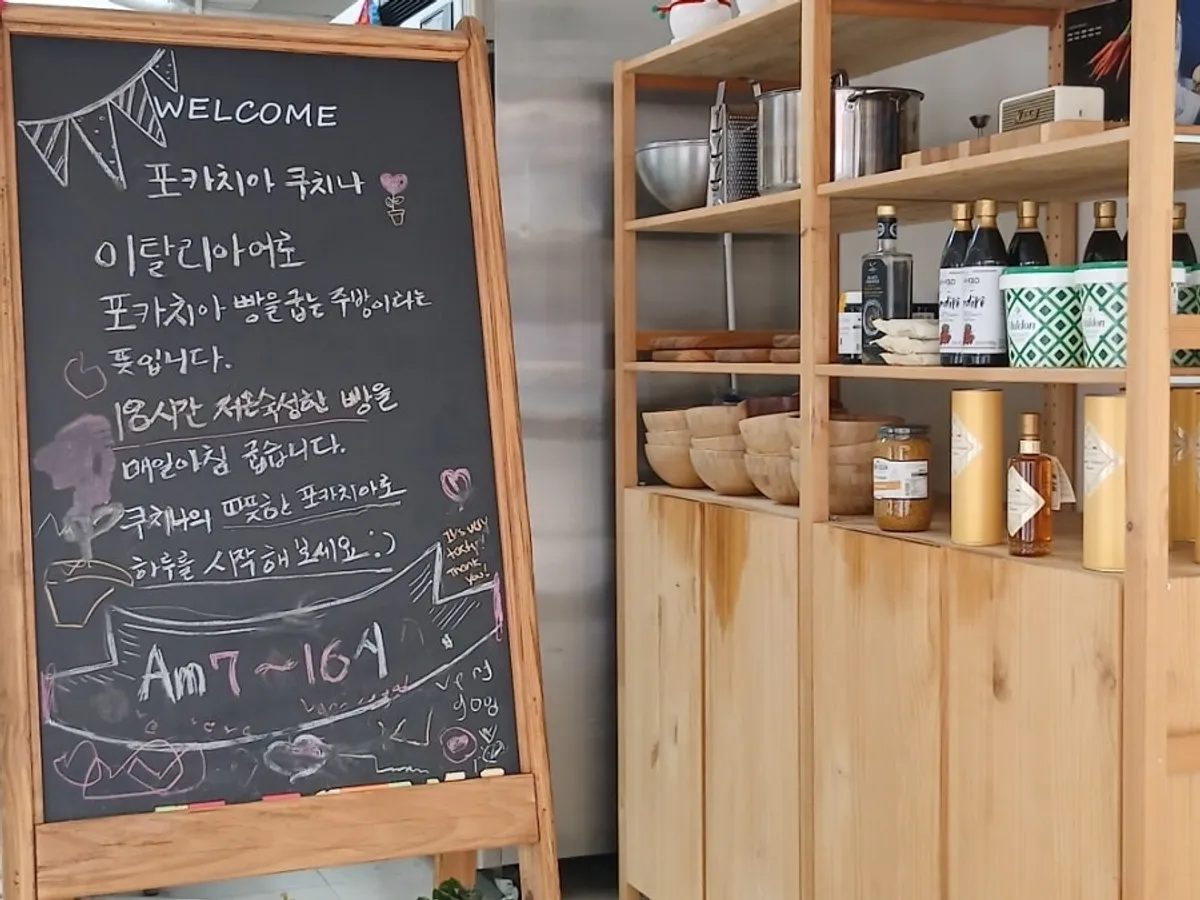 WELCOME
포카치아 쿠치나
이탈리아어로
포카치아 빵을 굽는 주방이라는
뜻입니다.
18시간 저온숙성한 빵을
매일아침 굽습니다.
쿠치나의 따뜻한 포카치아로
하루를 시작해 보세요 :)
It's very
tasty!
Thank
you!
Am 7 ~ 16시
very
maldon
maldon